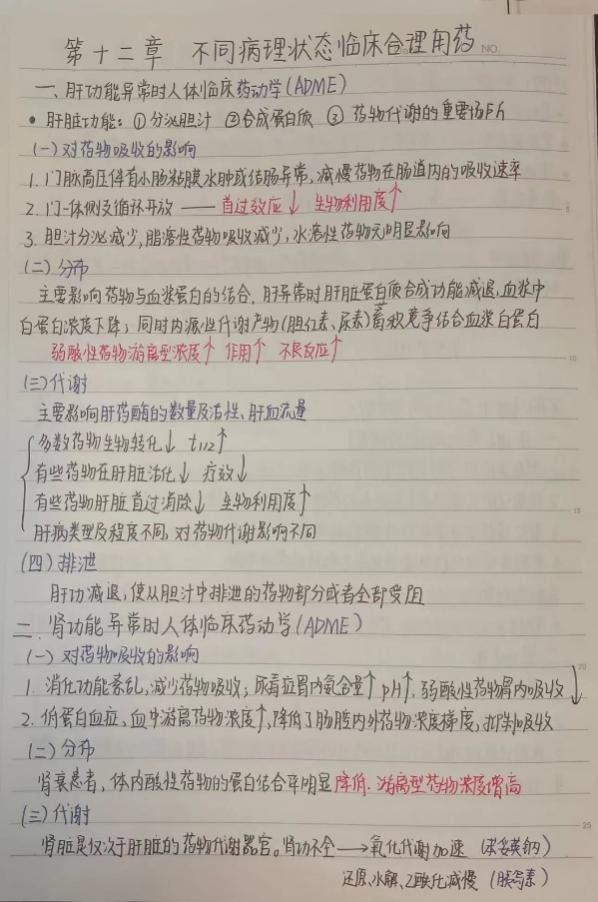 第十二章 不同病理状态临床合理用药 NO.
一、肝功能异常时人体临床药动学(ADME)
• 肝脏功能：①分泌胆汁 ②合成蛋白质 ③药物代谢的重要场所
(一)对药物吸收的影响
1. 门脉高压伴有小肠粘膜水肿或结肠异常，减慢药物在肠道内的吸收速率
2. 门-体侧支循环开放 —— 首过效应↓ 生物利用度↑
3. 胆汁分泌减少，脂溶性药物吸收减少，水溶性药物无明显影响
(二)分布
主要影响药物与血浆蛋白的结合，肝异常时肝脏蛋白质合成功能减退，血浆中
白蛋白浓度下降；同时内源性代谢产物(胆红素、尿素)蓄积竞争结合血浆白蛋白
弱酸性药物游离型浓度↑ 作用↑ 不良反应↑
(三)代谢
主要影响肝药酶的数量及活性、肝血流量
多数药物生物转化↓ t1/2↑
有些药物在肝脏活化↓ 疗效↓
有些药物肝脏首过消除↓ 生物利用度↑
肝病类型及程度不同，对药物代谢影响不同
(四)排泄
肝功减退，使从胆汁中排泄的药物部分或者全部受阻
二、肾功能异常时人体临床药动学(ADME)
(一)对药物吸收的影响
1. 消化功能紊乱，减少药物吸收；尿毒症胃内氨含量↑ pH↑，弱酸性药物胃内吸收↓
2. 低蛋白血症，血中游离药物浓度↑，降低了肠腔内外药物浓度梯度，抑制吸收
(二)分布
肾衰患者，体内酸性药物的蛋白结合率明显降低，游离型药物浓度增高
(三)代谢
肾脏是仅次于肝脏的药物代谢器官。肾功不全→氧化代谢加速（苯妥英钠）
还原、水解、乙酰化减慢（胰岛素）